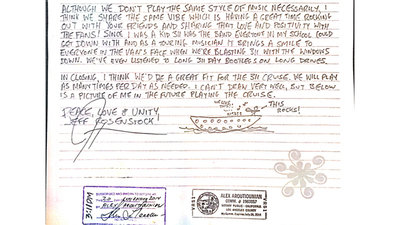 ALTHOUGH WE DON'T PLAY THE SAME STYLE OF MUSIC NECESSARILY, I
THINK WE SHARE THE SAME VIBE WHICH IS HAVING A GREAT TIME ROCKING
OUT WITH YOUR FRIENDS AND SHARING THAT LOVE AND POSITIVITY WITH
THE FANS! SINCE I WAS A KID 311 WAS THE BAND EVERYONE IN MY SCHOOL COULD
GOT DOWN WITH AND AS A TOURING MUSICIAN IT BRINGS A SMILE TO
EVERYONE IN THE VAN'S FACE WHEN WE'RE BLASTING 311 WITH THE WINDOWS
DOWN. WE'VE EVEN LISTENED TO LONG 311 DAY BOOTLEGS ON LONG DRIVES.
IN CLOSING, I THINK WE'D BE A GREAT FIT FOR THE 311 CRUISE. WE WILL PLAY
AS MANY TIMES PER DAY AS NEEDED. I CAN'T DRAW VERY WELL, BUT BELOW
IS A PICTURE OF ME IN THE FUTURE PLAYING THE CRUISE.
PEACE, LOVE & UNITY,
JEFF ROSENSTOCK
THIS
ROCKS!
3:11PM
20
ALEX AROUTIOUNIAN
NOTARY PUBLIC - CALIFORNIA
LOS ANGELES COUNTY